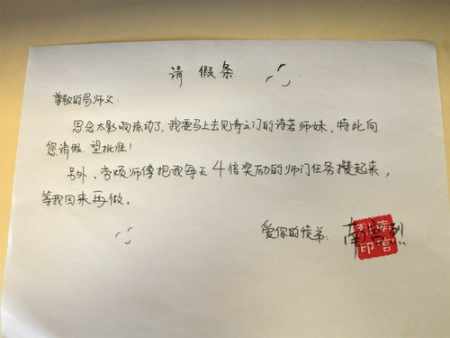 请假条
尊敬的易师父:
思念太影响活动了,我要马上去见清云门的诗若师妹,特此向
您请假 望批准!
另外,劳烦师傅把我每天4倍奖励的师门任务攒起来,
等我回来再做。
爱你的徒弟: 南宫烈
南宫
烈印